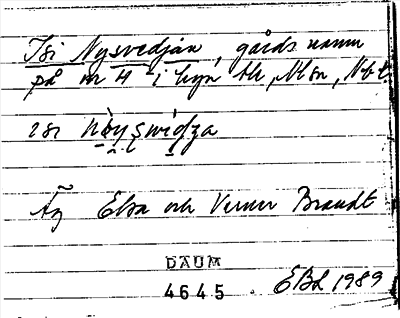 Isi Nysvedjan, gårdsnamn
på nr 4 i byn
isi nòyswidza
Äg Elsa och Verner Brandt
DAUM
4645. EBL 1989